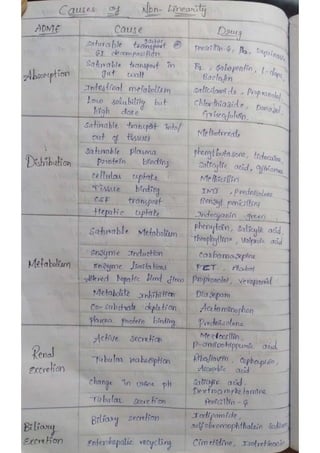 Causes of Non-Linearity
ADME Cause Drug
Absorption
Saturable transport
GI decomposition Penicillin G,
Saturable transport in
gut wall Gabapentin, L-dopa,
Baclofen
Intestinal metabolism Salicylamide, Propranolol
Low solubility but
high dose Chlorthiazide, Danazol
Griseofulvin
Distribution
Saturable transport into/
out of tissues Methotrexate
Saturable plasma
protein binding Phenylbutazone, Lidocaine
Salicylic acid,
Cellular uptake Methicillin
Tissue binding Prednisolone
CSF transport Benzyl penicillins
Hepatic uptake Indocyanin green
Metabolism
Saturable Metabolism Phenytoin, Salicylic acid,
Theophylline, Valproic acid
Enzyme Induction Carbamazepine
Enzyme limitations Alcohol
Altered hepatic blood flow Propranolol, Verapamil
Metabolite inhibition Diazepam
Co-substrate depletion Acetaminophen
Plasma protein binding Prednisolone
Renal
Excretion
Active secretion
P-aminohippuric acid
Tubular reabsorption Riboflavin, Cephapirin,
Ascorbic acid
Change in urine pH Salicylic acid
Dextroamphetamine
Tubular secretion Penicillin-G
Biliary
Excretion
Biliary secretion Iodipamide,
Sulfobromophthalein Sodium
Enterohepatic recycling Cimetidine, Isotretinoin